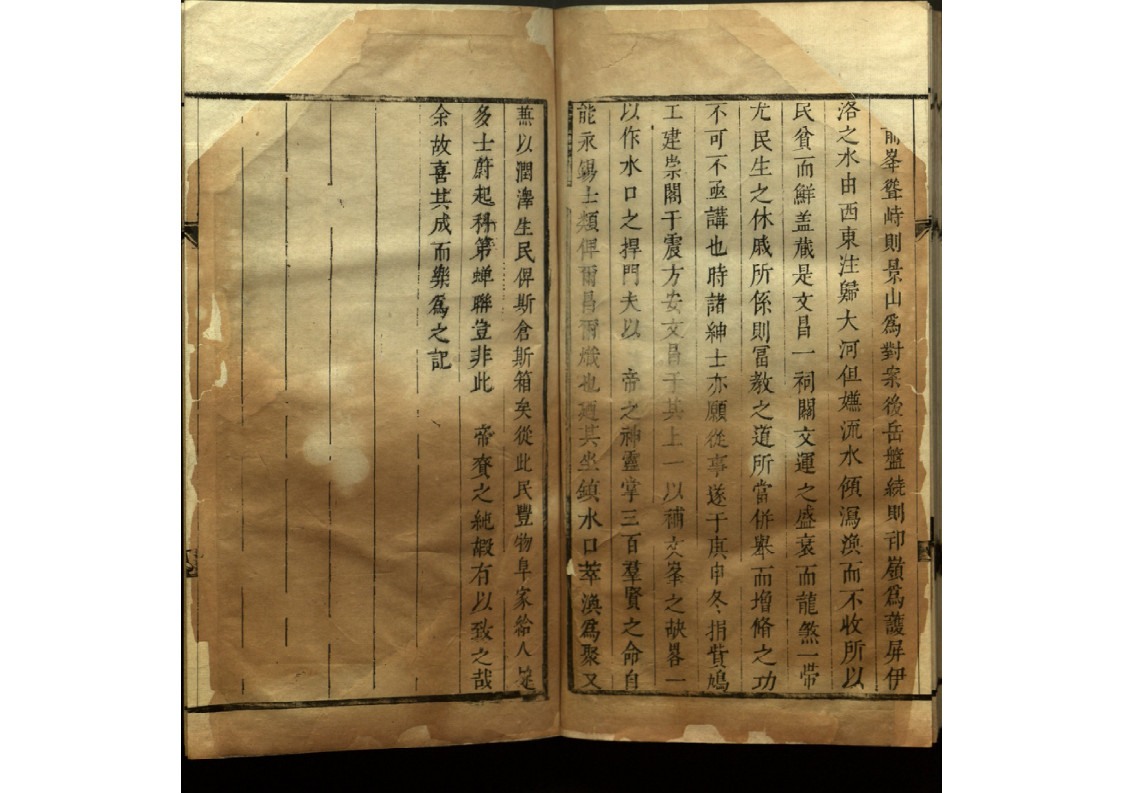 前峯聳峙則景山爲對案後岳盤繞則邙嶺爲護屏伊
洛之水由西東注歸大河但嫌流水傾瀉渙而不收所以
民貧而鮮盖蔵是文昌一祠關文運之盛衰而龍煞一帶
尤民生之休戚所係則冨教之道所當併舉而增脩之功
不可不亟講也時諸紳士亦願從事遂于庚申冬捐貲鳩
工建崇閣于震方安文昌于其上一以補文峯之缺畧一
以作水口之捍門夫以 帝之神靈掌三百羣賢之命自
能永錫士類俾爾昌爾熾也廼其坐鎮水口萃渙爲聚又
無以潤澤生民俾斯倉斯箱矣從此民豐物阜家給人足
多士蔚起科第蝉聯豈非此 帝賚之純嘏有以致之哉
余故喜其成而樂爲之記